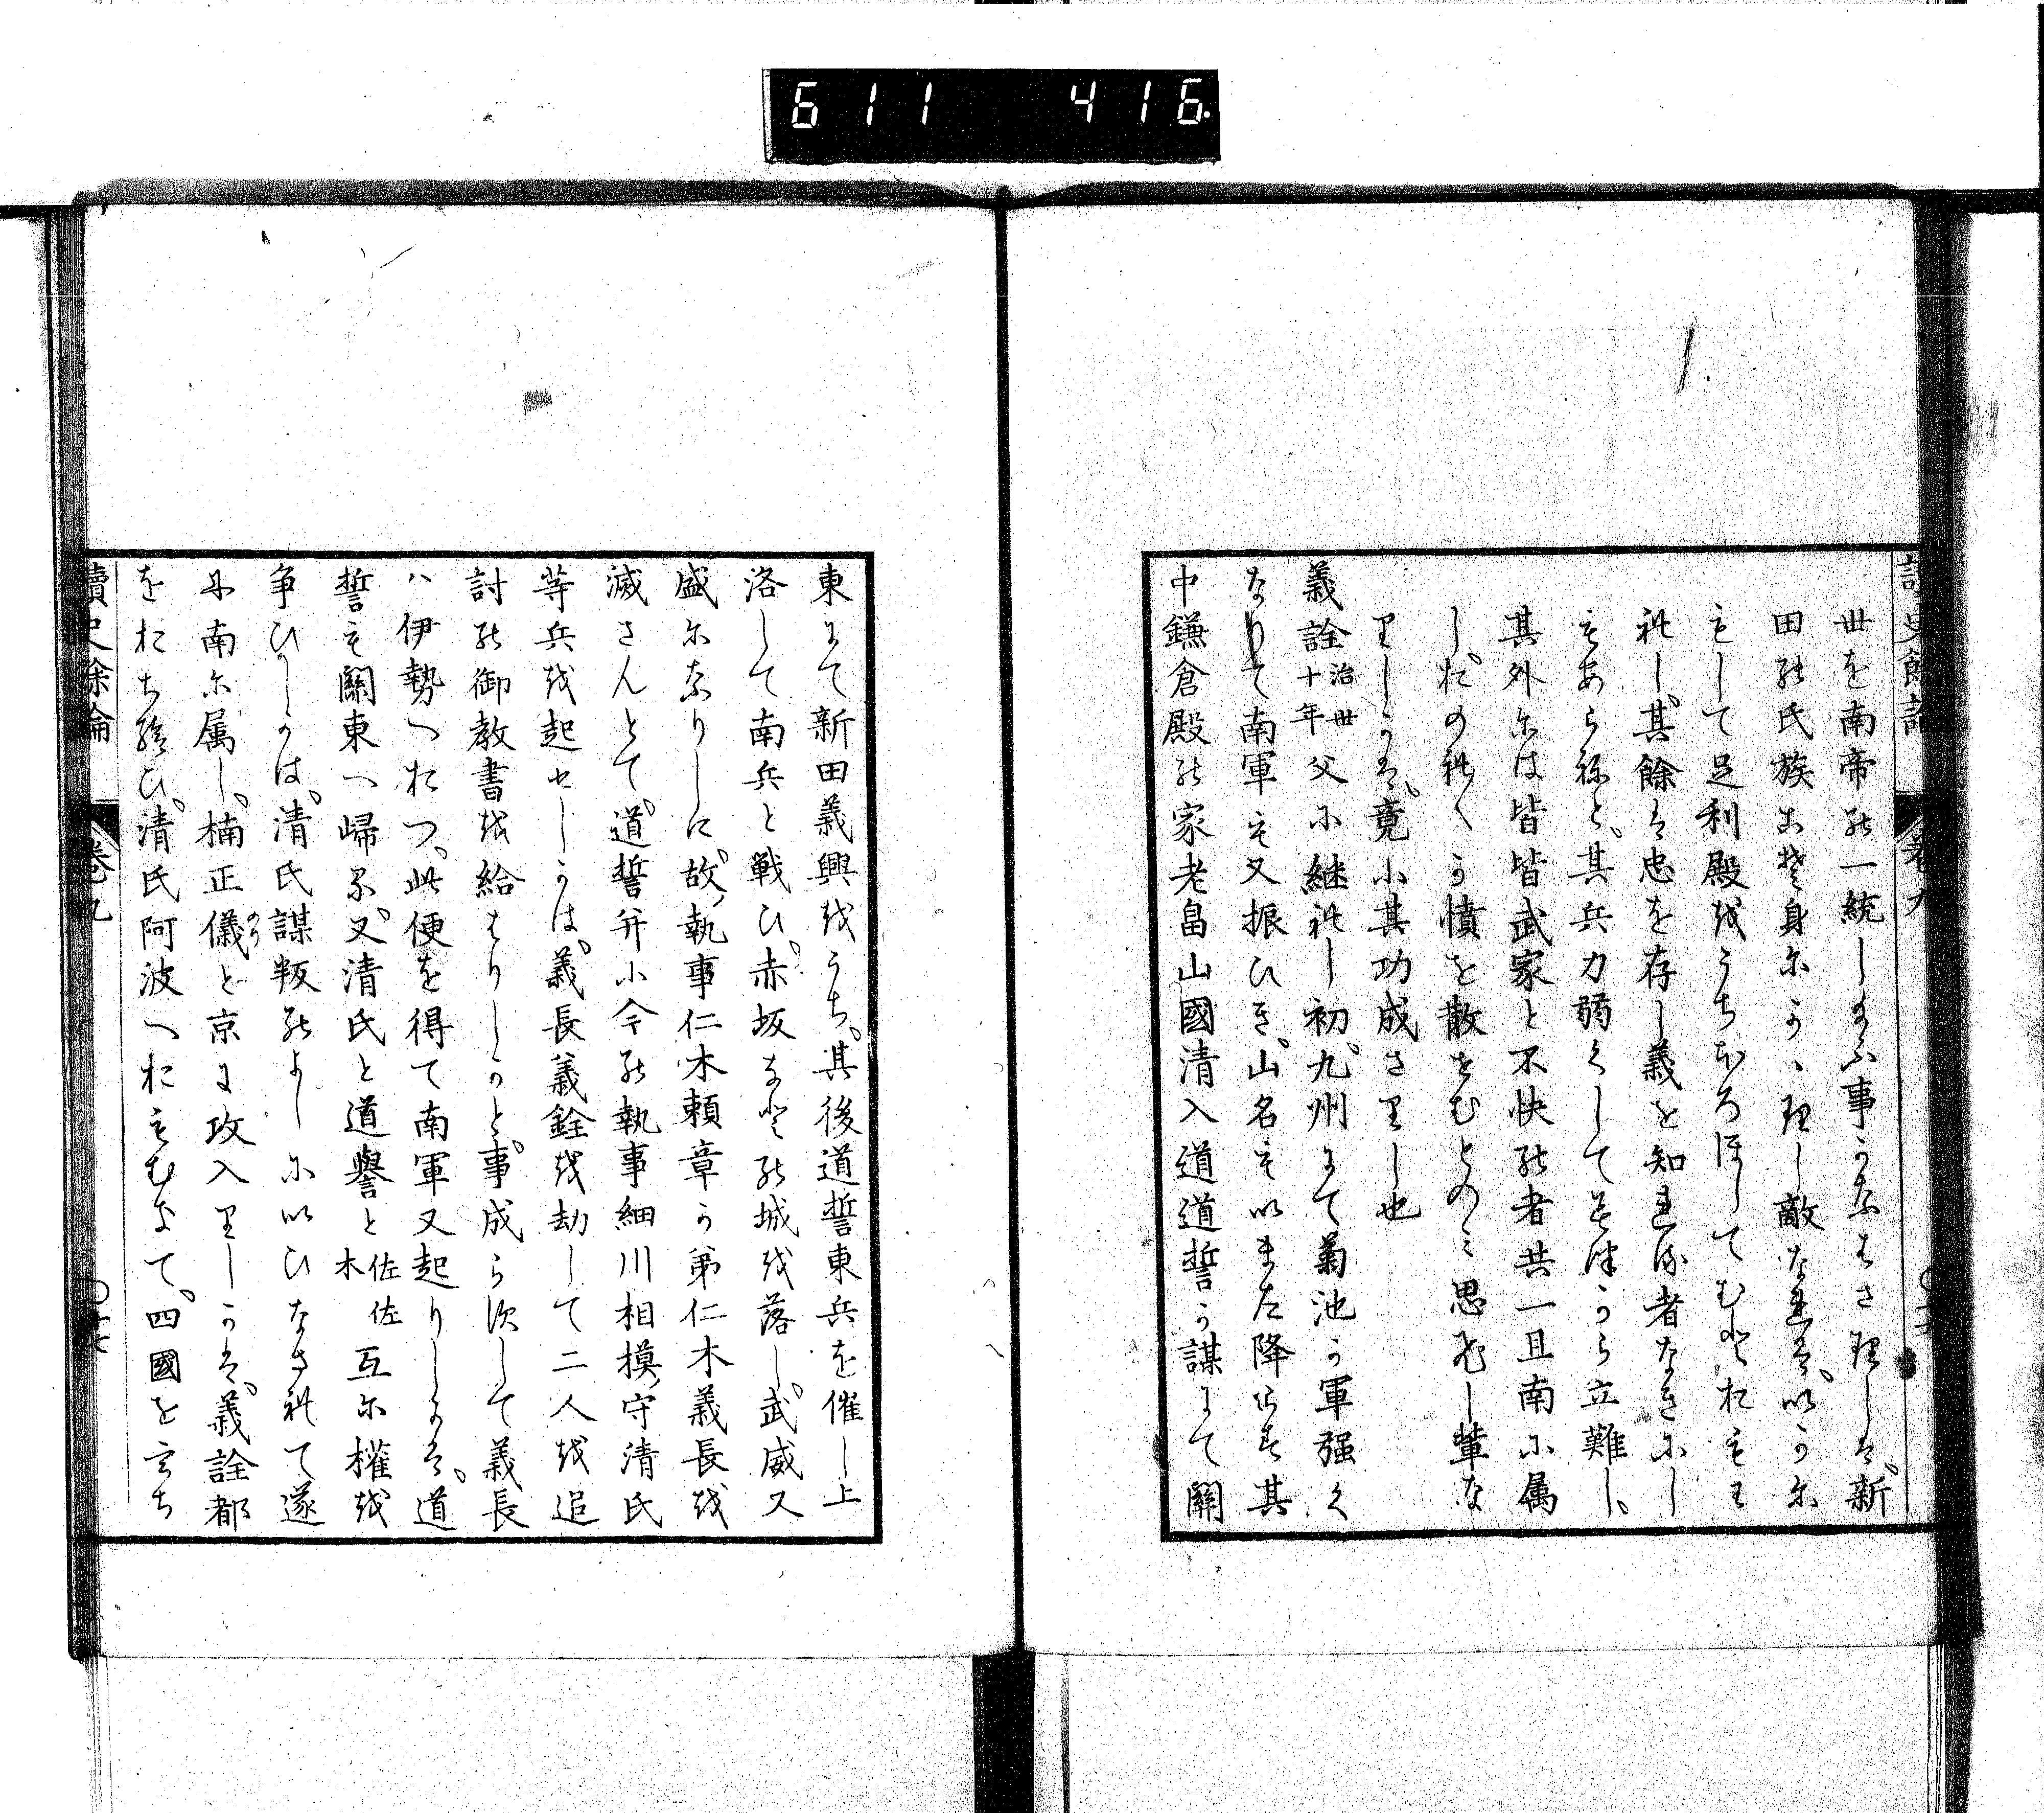 611 416.
讀史餘論 卷九
世を南帝の一統し給ふ事かなはさりしは、新
田の氏族こそ身にかゝりし敵なれは、いかに
もして足利殿をうちほろほしてむとおもは
れし、其餘は忠を存し義を知れる者なきにし
もあらねと、其兵力弱くしてみつから立難し、
其外には皆皆武家と不快の者共一旦南に属
し、おのれ〳〵か憤を散せむとのみ思ひし輩な
りしかは、竟に其功成さりし也
義詮治世十年父に継れし初、九州にて菊池か軍强く
なりて南軍も又振ひき、山名もいまた降らす其
中鎌倉殿の家老畠山國清入道道誓か謀にて關
東にて新田義興をうち、其後道誓東兵を催し上
洛して南兵と戦ひ、赤坂なとの城を落し、武威又
盛になりしに、故執事仁木頼章か弟仁木義長を
滅さんとて、道誓并に今の執事細川相摸守清氏
等兵を起せしかは、義長義詮を劫して二人を追
討の御教書を給はりしかと、事成らすして義長
ハ伊勢へおつ、此便を得て南軍又起りしかは、道
誓も關東へ歸る、又清氏と道譽と佐佐木互に權を
争ひしかは、清氏謀叛のよしにいひなされて遂
に南に属し、楠正儀のりと京に攻入りしかは、義詮都
をおち給ひ、清氏阿波へおもむきて、四國をうち
讀史餘論 卷九